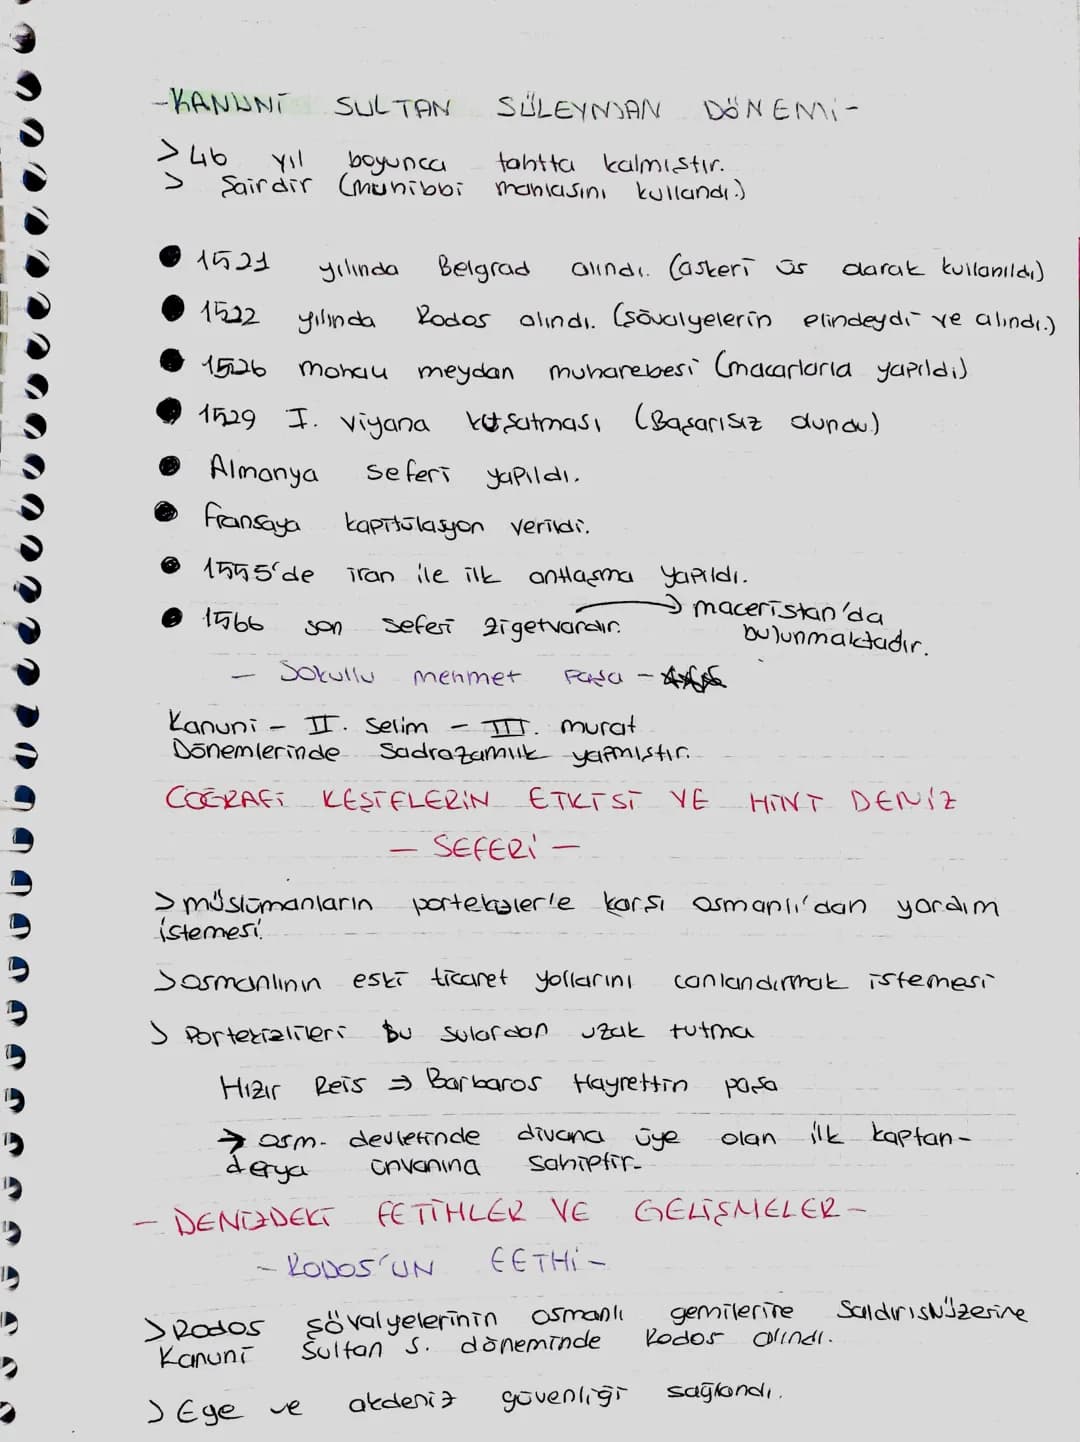 -KANUNİ SULTAN SÜLEYMAN DÖNEMİ-
> 46 yıl boyunca tahtta kalmıştır.
> Şairdir (Muhibbi mahlasını kullandı.)
● 1521 yılında Belgrad alındı. (askeri üs olarak kullanıldı)
● 1522 yılında Rodos alındı. (şövalyelerin elindeydi ve alındı.)
● 1526 mohaç meydan muharebesi (macarlarla yapıldı)
● 1529 I. viyana kuşatması (Başarısız olundu.)
● Almanya seferi yapıldı.
● fransaya kapitülasyon verildi.
● 1555'de iran ile ilk antlaşma yapıldı.
● 1566 son seferi zigetvardır. → maceristan'da bulunmaktadır.
- Sokullu mehmet Paşa -
Kanuni - II. Selim - III. murat
Dönemlerinde Sadrazamlık yapmıştır.
COĞRAFİ KEŞİFLERİN ETKİSİ VE HİNT DENİZ
- SEFERİ -
> müslümanların portekizler'e karşı osmanlı'dan yardım
istemesi.
> osmanlının eski ticaret yollarını canlandırmak istemesi
> Portekizlileri bu sulardan uzak tutma
Hızır Reis ⇒ Barbaros Hayrettin paşa
→ osm. devletinde divana üye olan ilk kaptan-
derya ünvanına sahiptir.
- DENİZDEKİ FETİHLER VE GELİŞMELER -
- RODOS'UN FETHİ -
> Rodos şövalyelerinin osmanlı gemilerine saldırısı üzerine
Kanuni Sultan S. döneminde Rodos alındı.
> Ege ve akdeniz güvenliği sağlandı.